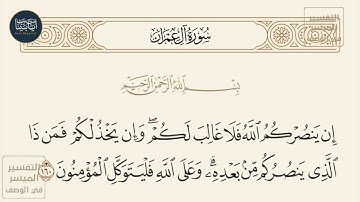 سُورَةُ آلِ عِمْرَان
بِسْمِ اللَّهِ الرَّحْمَٰنِ الرَّحِيمِ
إِن يَنصُرْكُمُ ٱللَّهُ فَلَا غَالِبَ لَكُمْ ۖ وَإِن يَخْذُلْكُمْ فَمَن ذَا
ٱلَّذِى يَنصُرُكُم مِّنۢ بَعْدِهِۦ ۗ وَعَلَى ٱللَّهِ فَلْيَتَوَكَّلِ ٱلْمُؤْمِنُونَ
التفسير
الميسر
١٦٠
في الوصف